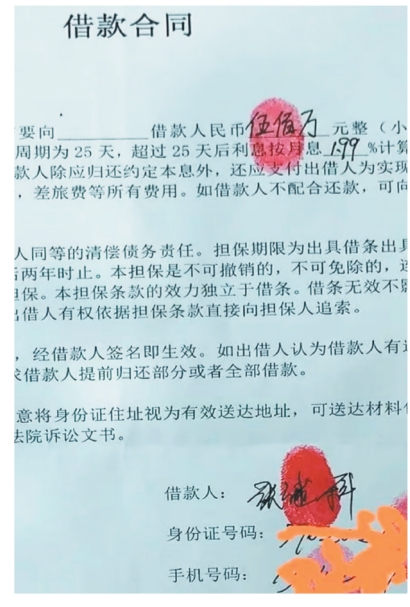 借款合同
要向________借款人民币 伍佰万 元整（小
周期为 25 天，超过 25 天后利息按月息 1.99 %计算
款人除应归还约定本息外，还应支付出借人为实现
，差旅费等所有费用。如借款人不配合还款，可向
人同等的清偿债务责任。担保期限为出具借条出具
后两年时止。本担保是不可撤销的，不可免除的，连
担保。本担保条款的效力独立于借条。借条无效不影
出借人有权依据担保条款直接向担保人追索。
，经借款人签名即生效。如出借人认为借款人有
求借款人提前归还部分或者全部借款。
意将身份证住址视为有效送达地址，可送达材料
法院诉讼文书。
借款人：张继科
身份证号码：
手机号码：